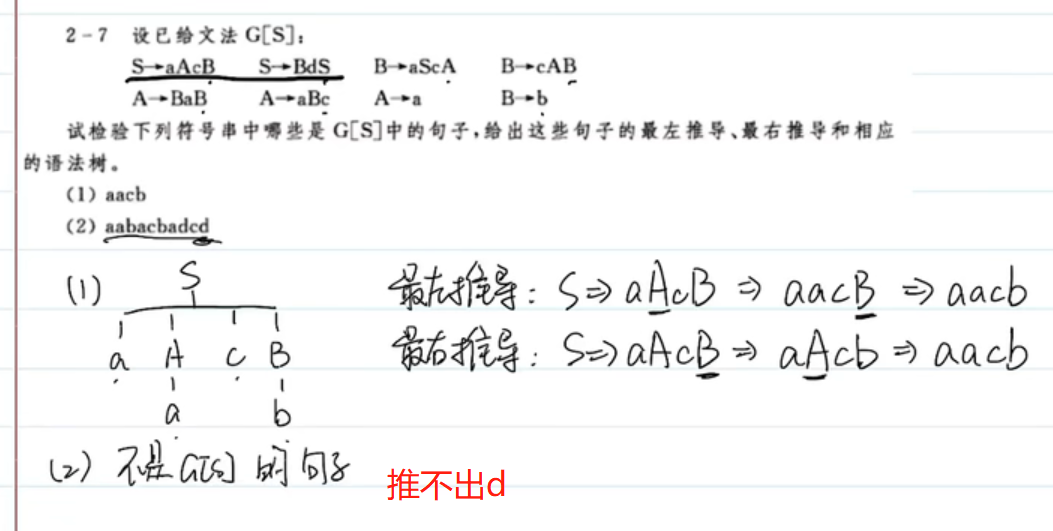 2-7 设已给文法 G[S]:
S→aAcB S→BdS B→aScA B→cAB
A→BaB A→aBc A→a B→b
试检验下列符号串中哪些是 G[S]中的句子,给出这些句子的最左推导、最右推导和相应
的语法树。
(1) aacb
(2) aabacbadcd
(1) S 最左推导: S⇒aAcB⇒aacB⇒aacb
a A c B 最右推导: S⇒aAcB⇒aAcb⇒aacb
a b
(2) 不是G[S]的句子 推不出d